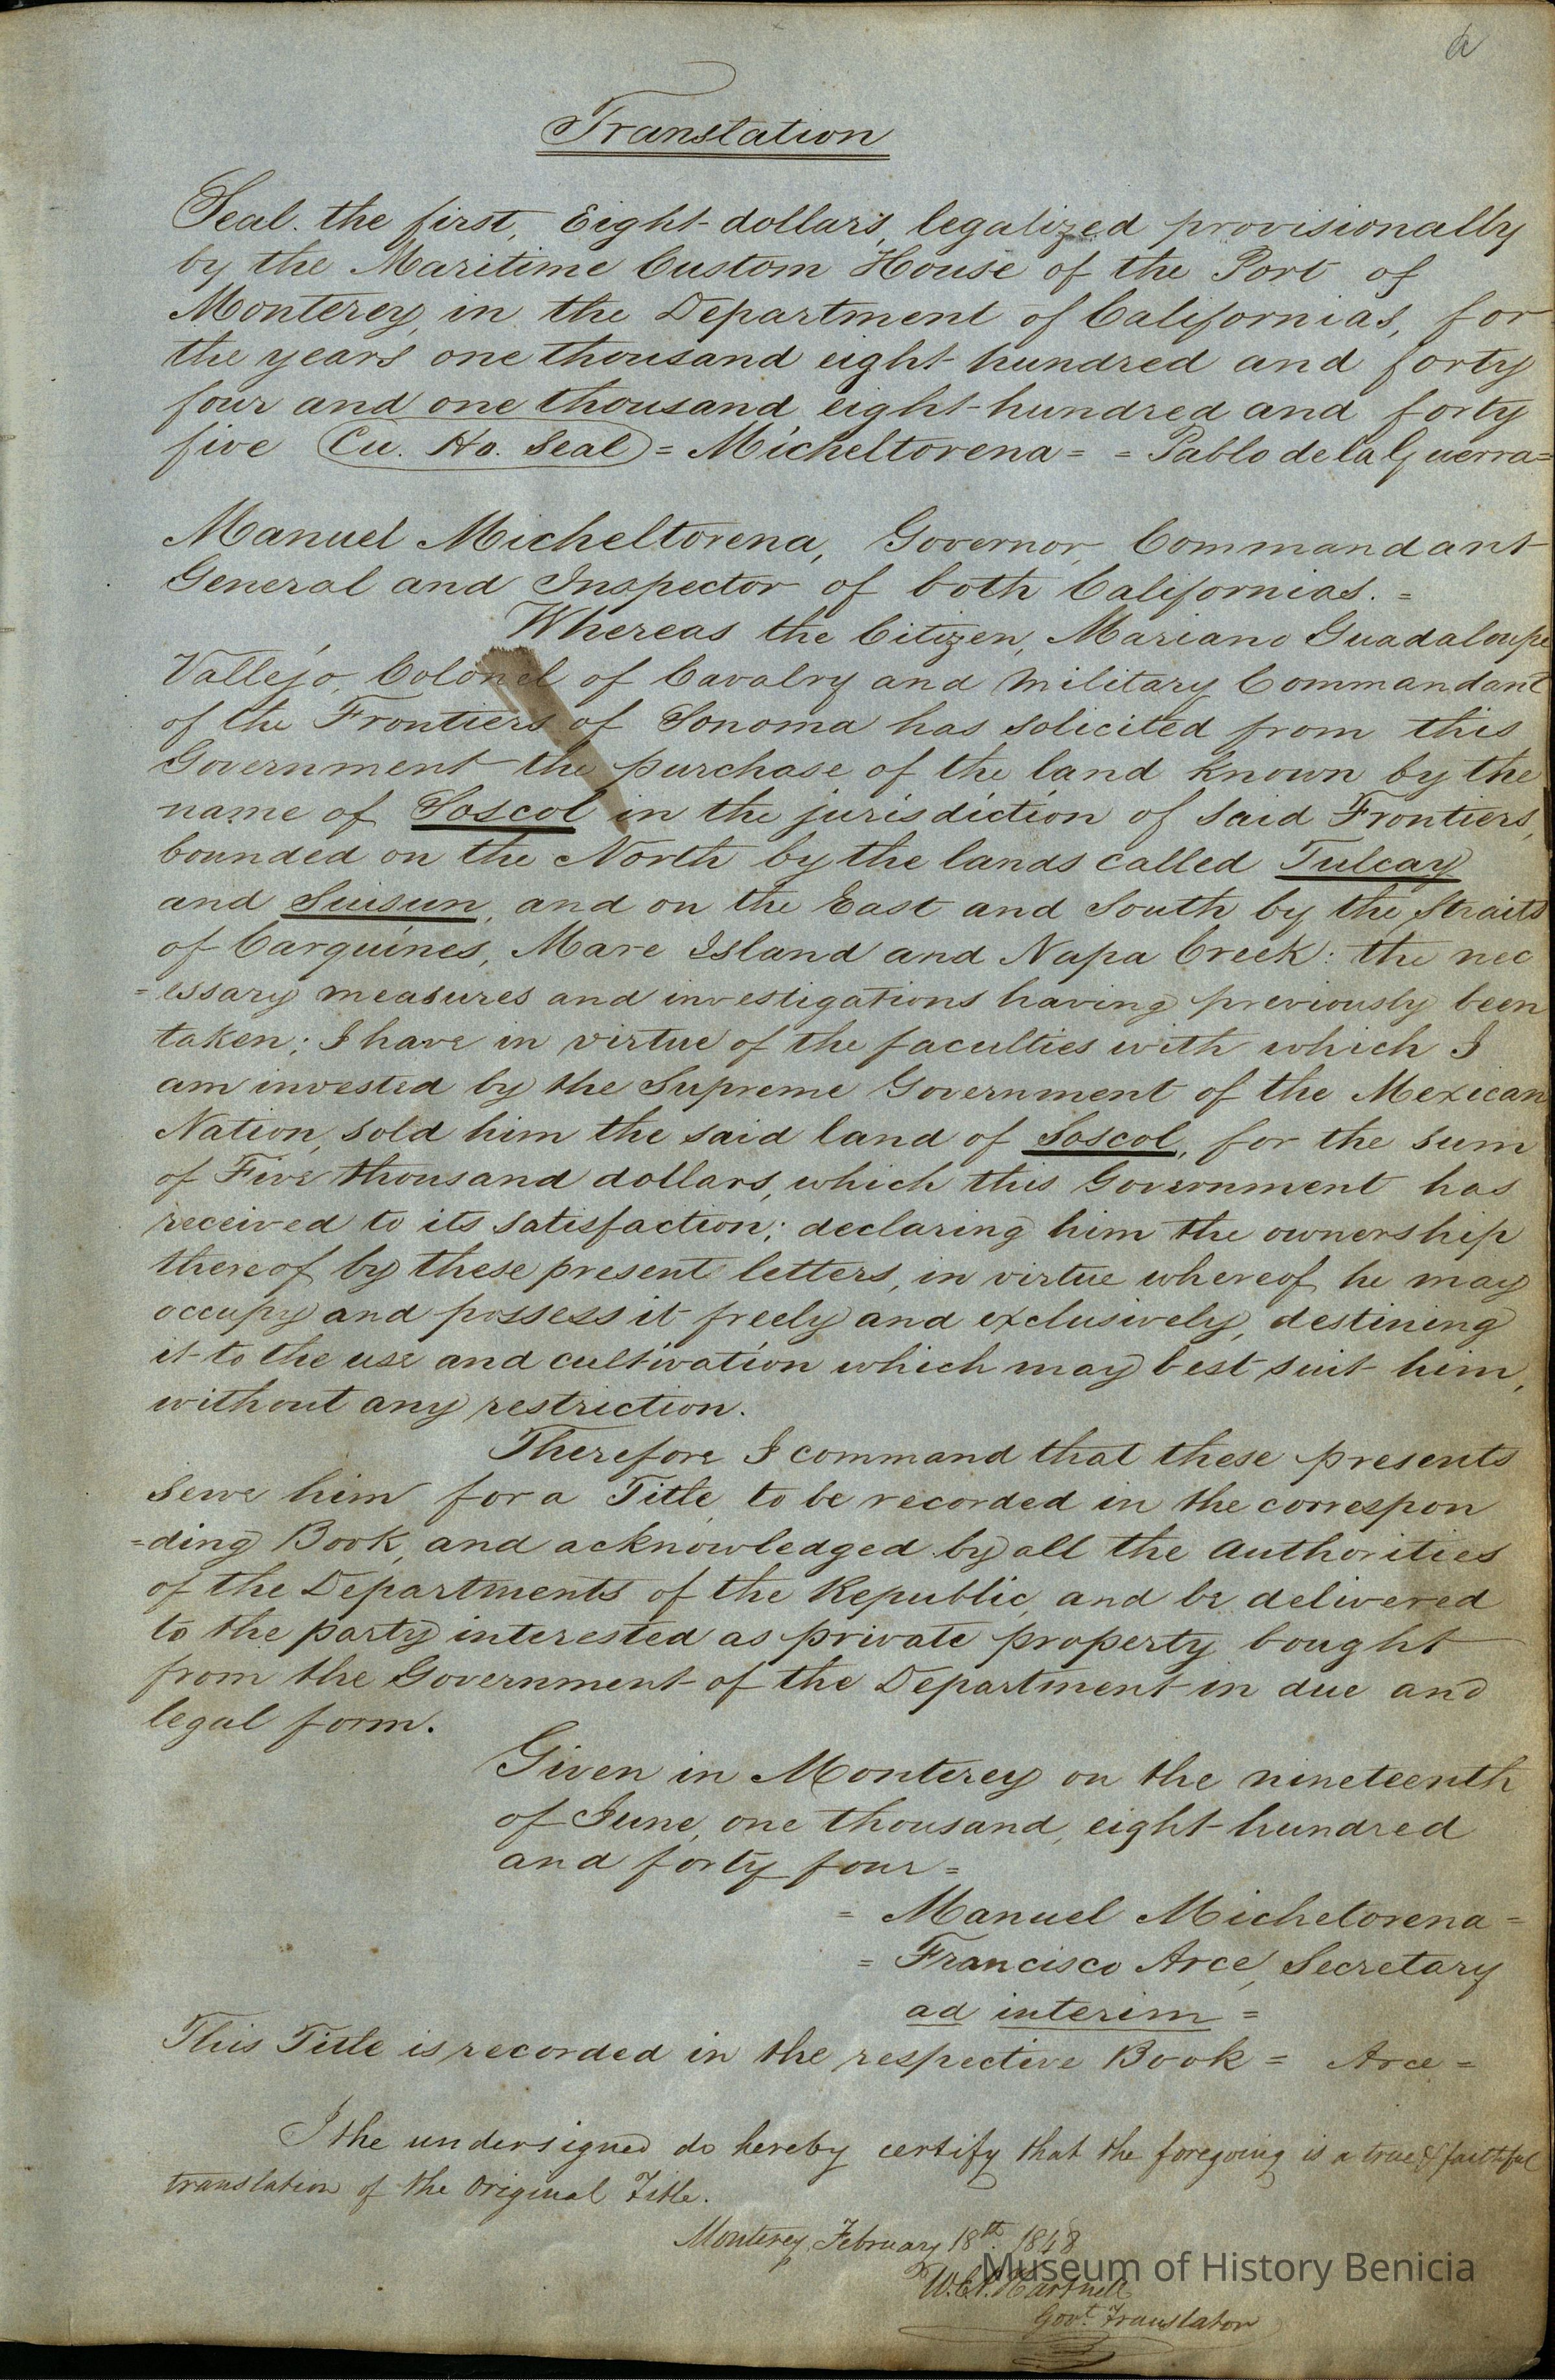 Translation
Seal the first, Eight dollars, legalized provisionally
by the Maritime Custom House of the Port of
Monterey, in the Department of Californias, for
the years one thousand eight hundred and forty
four and one thousand eight-hundred and forty
five Cu. Ho. Seal = Micheltorena = = Pablo de la Guerra =
Manuel Micheltorena, Governor, Commandant
General and Inspector of both Californias. =
Whereas the Citizen, Mariano Guadaloupe
Vallejo, Colonel of Cavalry and Military Commandant
of the Frontiers of Sonoma has solicited from this
Government the purchase of the land known by the
name of Soscol in the jurisdiction of said Frontiers,
bounded on the North by the lands called Tulcay
and Suisun, and on the East and South by the Straits
of Carquines, Mare Island and Napa Creek: the nec
=essary measures and investigations having previously been
taken; I have in virtue of the faculties with which I
am invested by the Supreme Government of the Mexican
Nation, sold him the said land of Soscol, for the sum
of Five thousand dollars, which this Government has
received to its satisfaction; declaring him the ownership
thereof by these present letters, in virtue whereof he may
occupy and possess it freely and exclusively, destining
it to the use and cultivation which may best suit him,
without any restriction.
Therefore I command that these presents
serve him for a Title, to be recorded in the correspon
=ding Book, and acknowledged by all the Authorities
of the Departments of the Republic, and be delivered
to the party interested as private property bought
from the Government of the Department in due and
legal form.
Given in Monterey on the nineteenth
of June, one thousand, eight-hundred
and forty four =
= Manuel Michelorena =
= Francisco Arce, Secretary
ad interim =
This Title is recorded in the respective Book = Arce =
I the undersigned do hereby certify that the foregoing is a true & faithful
translation of the Original Title.
Monterey, February 18th 1848
W.E.P. Hartnell
Govt. Translator
Museum of History Benicia